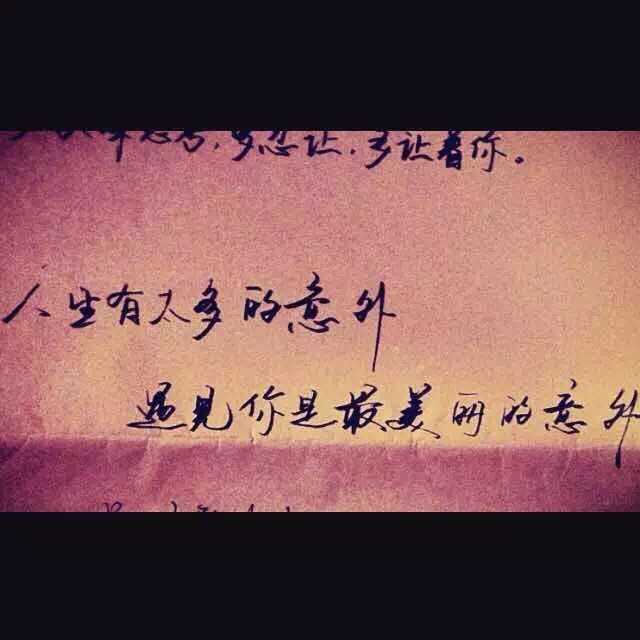 思考,多忍让,多让着你。
人生有太多的意外
遇见你是最美丽的意外